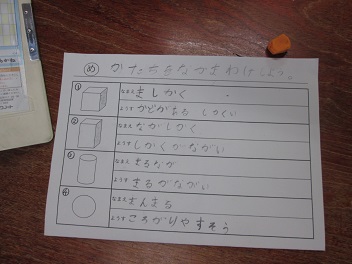 め かたちをなかまわけしよう。
① なまえ ましかく
ようす かどがある しかくい
② なまえ ながしかく
ようす しかくがながい
③ なまえ まるなが
ようす まるがながい
④ なまえ まんまる
ようす ころがりやすそう